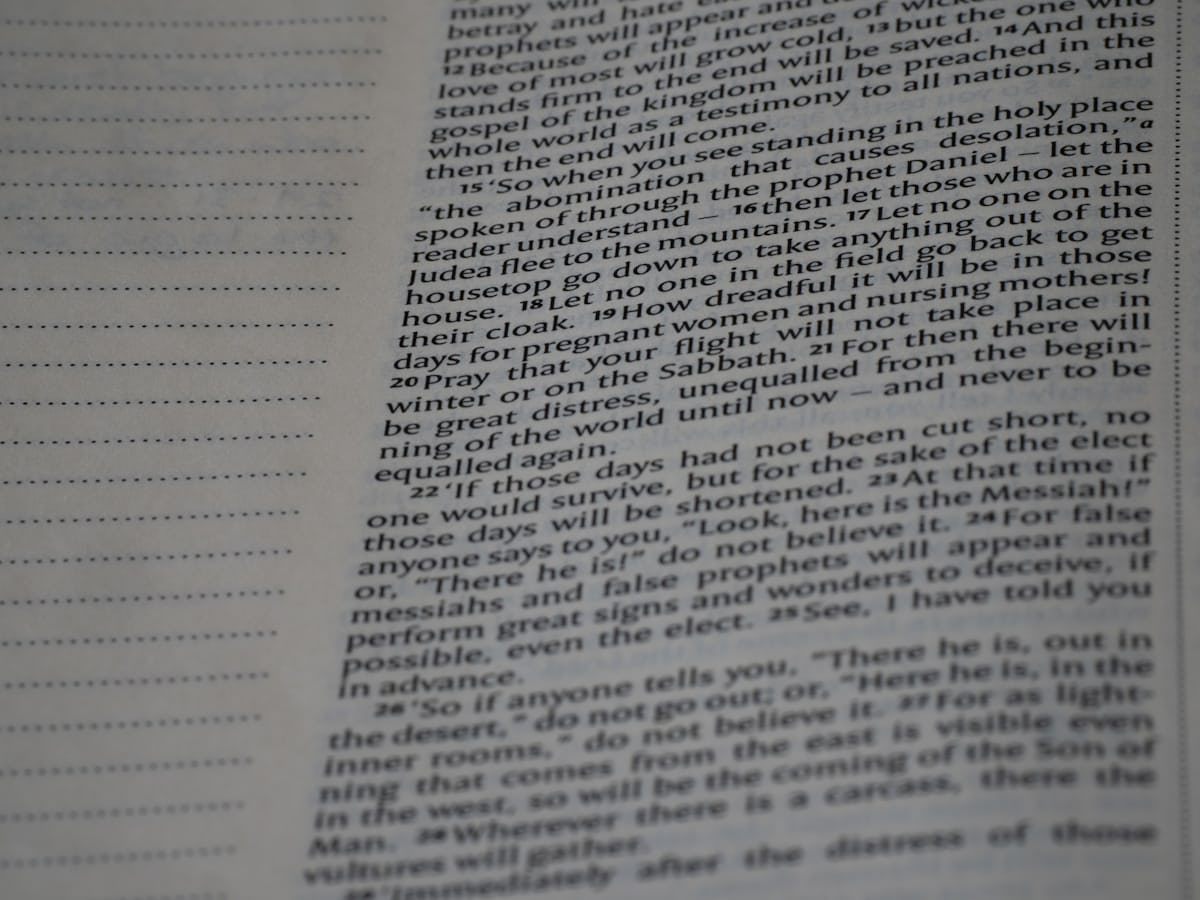 many will
betray and hate
prophets will appear and
12 Because of the increase of
love of most will grow cold, 13 but the one who
stands firm to the end will be saved. 14 And this
gospel of the kingdom will be preached in the
whole world as a testimony to all nations, and
then the end will come.
15 ‘So when you see standing in the holy place
“the abomination that causes desolation,”a
spoken of through the prophet Daniel – let the
reader understand – 16 then let those who are in
Judea flee to the mountains. 17 Let no one on the
housetop go down to take anything out of the
house. 18 Let no one in the field go back to get
their cloak. 19 How dreadful it will be in those
days for pregnant women and nursing mothers!
20 Pray that your flight will not take place in
winter or on the Sabbath. 21 For then there will
be great distress, unequalled from the begin-
ning of the world until now – and never to be
equalled again.
22 ‘If those days had not been cut short, no
one would survive, but for the sake of the elect
those days will be shortened. 23 At that time if
anyone says to you, “Look, here is the Messiah!”
or, “There he is!” do not believe it. 24 For false
messiahs and false prophets will appear and
perform great signs and wonders to deceive, if
possible, even the elect. 25 See, I have told you
in advance.
26 ‘So if anyone tells you, “There he is, out in
the desert,” do not go out; or, “Here he is, in the
inner rooms,” do not believe it. 27 For as light-
ning that comes from the east is visible even
in the west, so will be the coming of the Son of
Man. 28 Wherever there is a carcass, there the
vultures will gather.
29 ‘Immediately after the distress of those